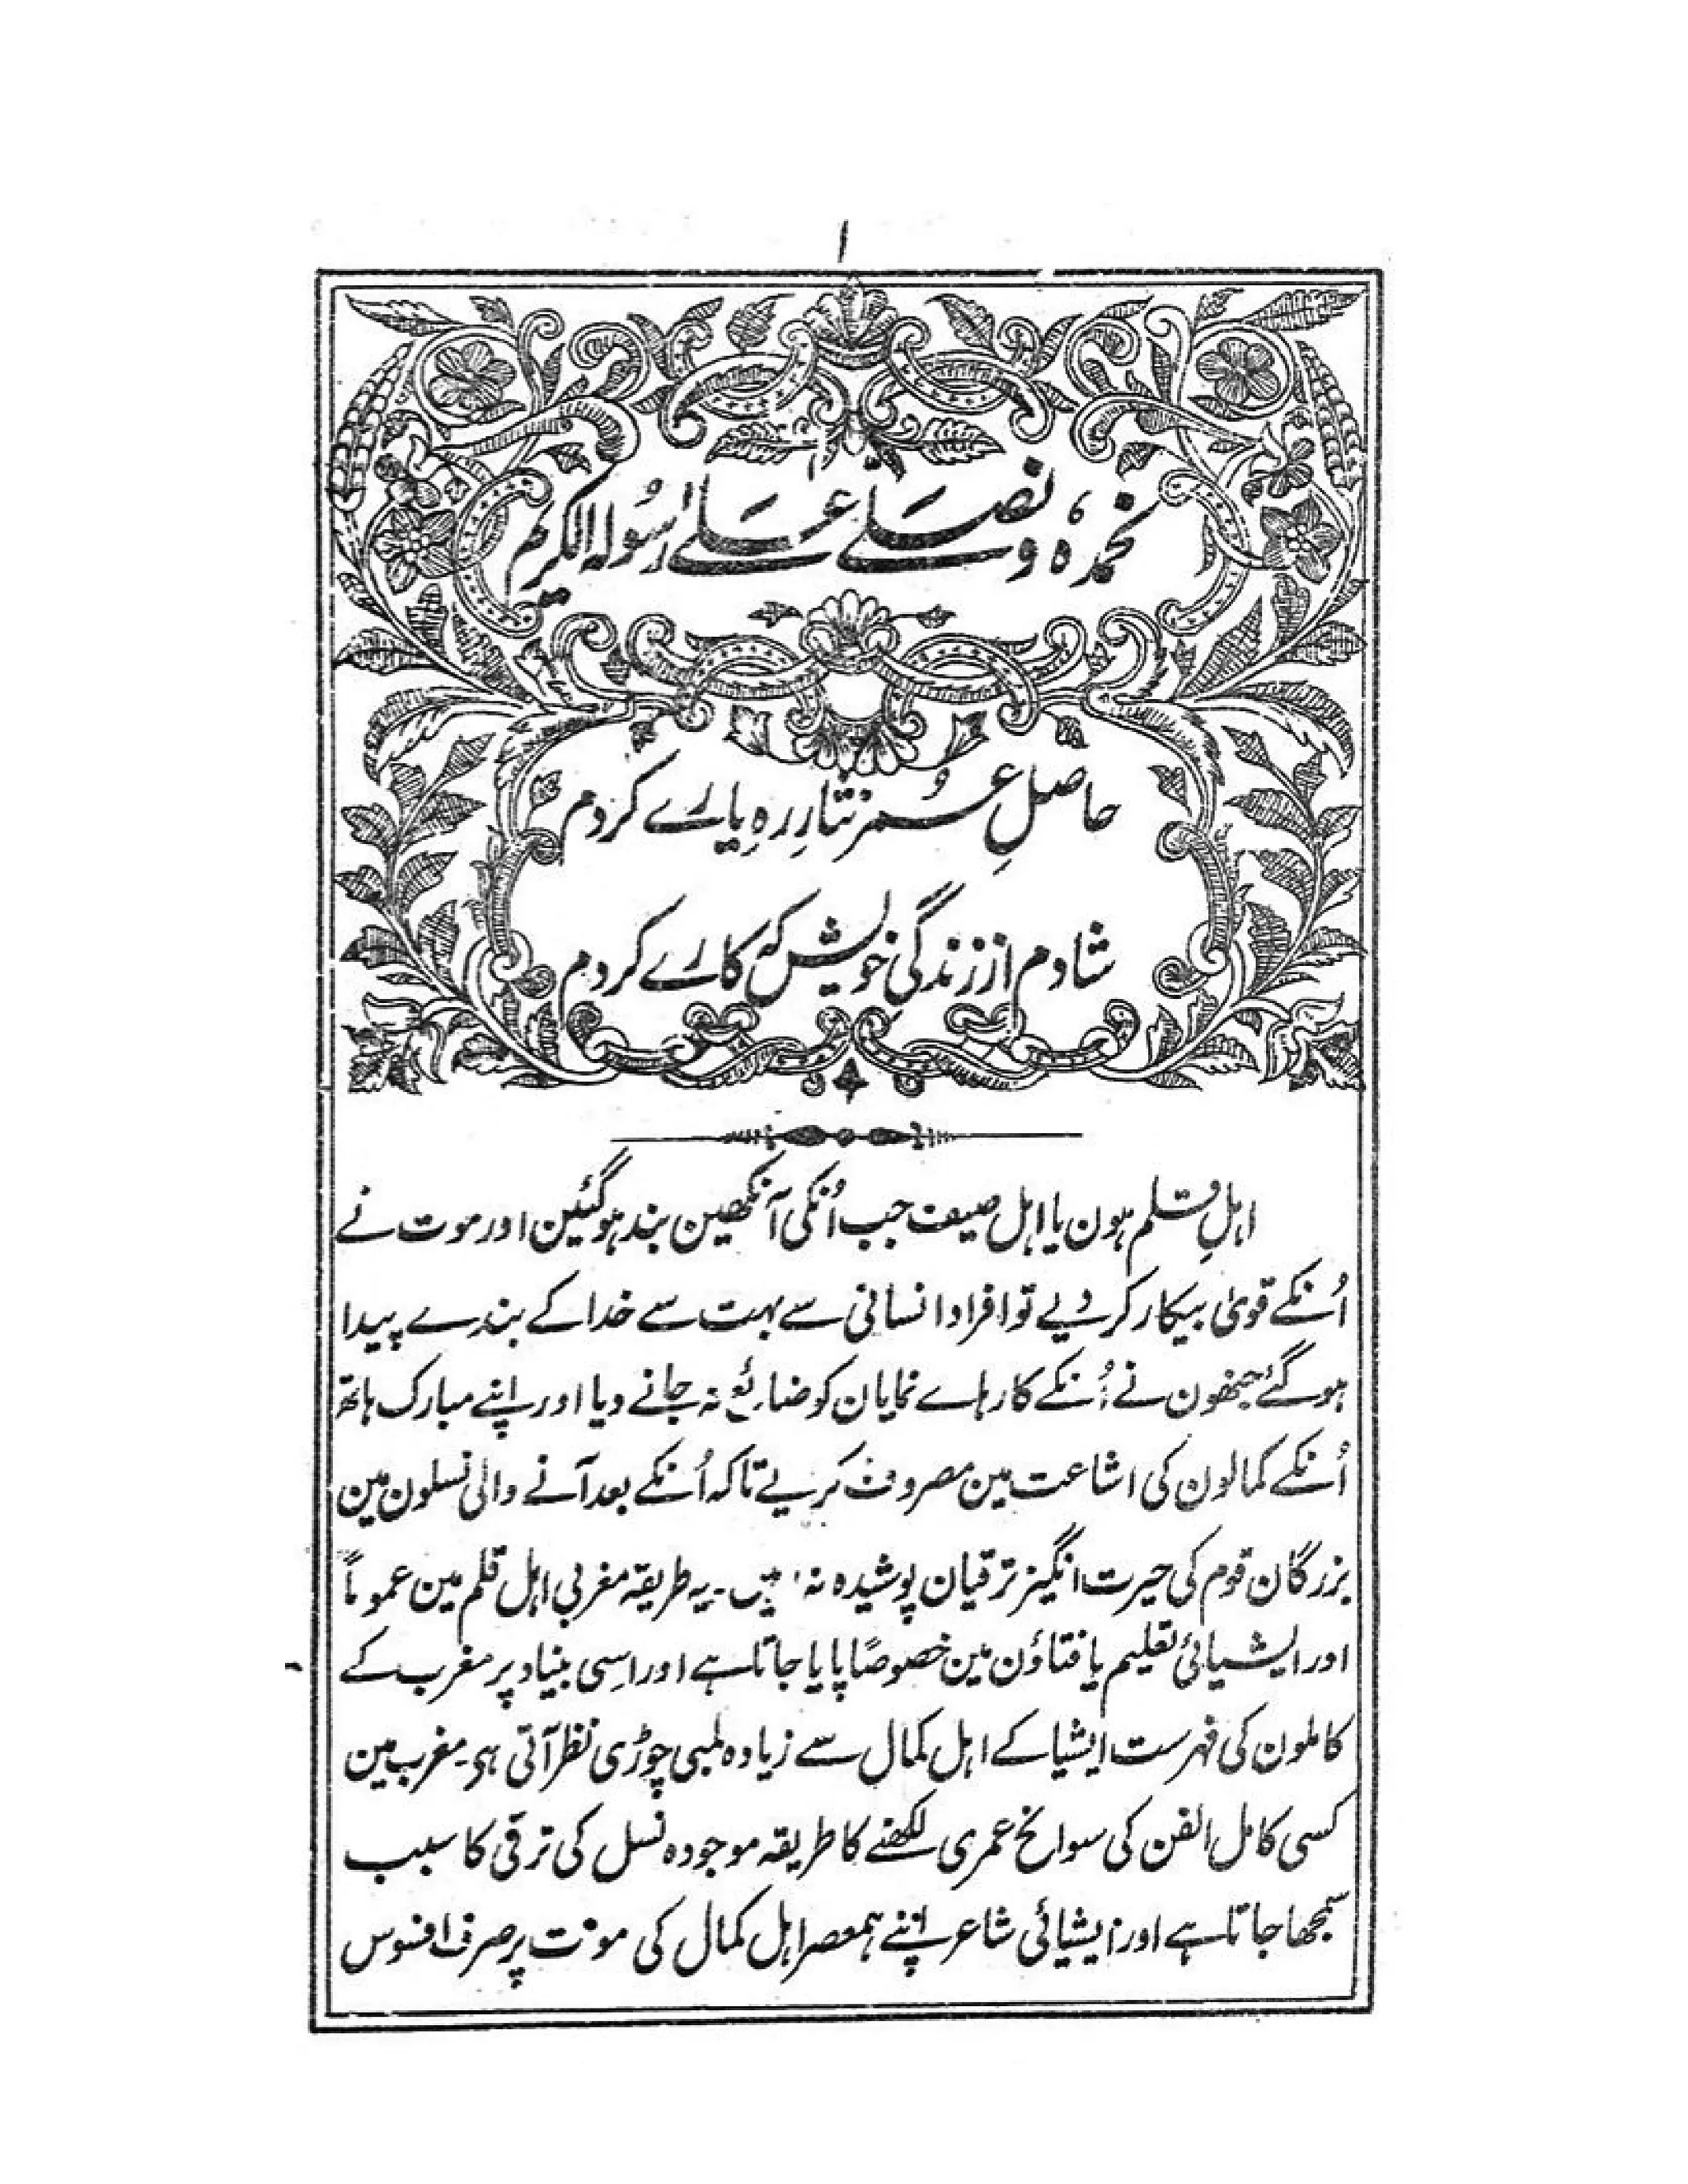 ۱
نحمدہ، و نصلے علے رسولہ الکریم
حاصلِ عُمر نثارِ رہِ یارے کردم
شادم از زندگی خویش کہ کارے کردم
اہلِ قلم ہون یا اہل سیف جب اُنکی آنکھین بند ہوگئین اور موت نے
اُنکے قویٰ بیکار کر دیے تو افراد انسانی سے بہت سے خدا کے بندے پیدا
ہوگئے جنھون نے اُنکے کارہاے نمایان کو ضائع نہ جانے دیا اور اپنے مبارک ہاتھ
اُنکے کمالون کی اشاعت مین مصروف کریے تاکہ اُنکے بعد آنے والی نسلون مین
بزرگان قوم کی حیرت انگیز ترقیان پوشیدہ نہ ۔ یہ طریقہ مغربی اہل قلم مین عموماً
اور ایشیائی تعلیم یافتاؤن مین خصوصاً پایا جاتا ہے اور اسِی بنیاد پر مغرب کے
کاملون کی فہرست ایشیا کے اہل کمال سے زیادہ لمبی چوڑی نظر آتی ہی۔ مغرب مین
کسی کامل الفن کی سوانح عمری لکھنے کا طریقہ موجودہ نسل کی ترقی کا سبب
سمجھا جاتا ہے اور ایشیائی شاعر اپنے ہمعصر اہل کمال کی موت پر صرف افسوس